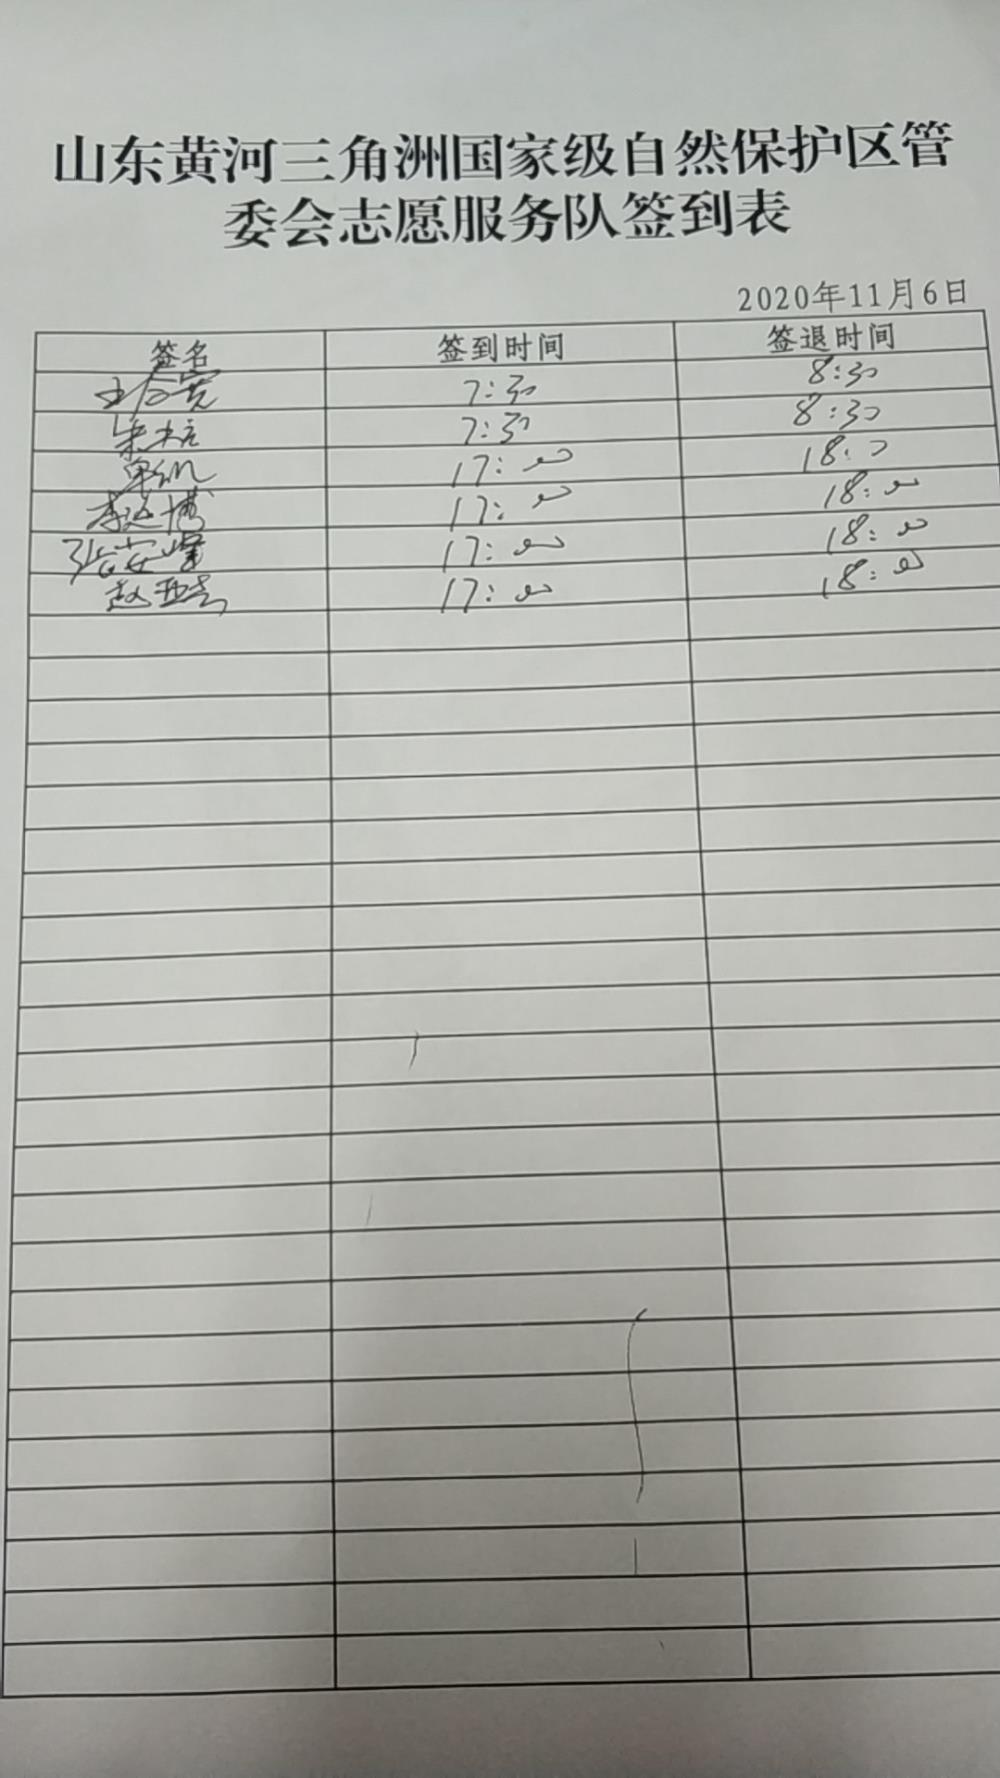 山东黄河三角洲国家级自然保护区管
委会志愿服务队签到表
2020年11月6日
签名 签到时间 签退时间
7:30 8:30
朱 7:30 8:30
单凯 17:00 18:0
李达博 17:00 18:00
张安峰 17:00 18:00
赵亚杰 17:00 18:00